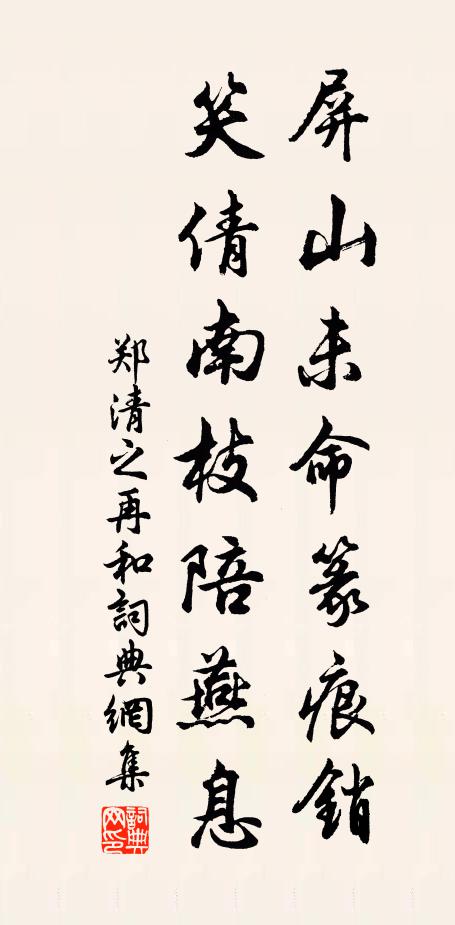 屏山未命篆痕銷
笑倩南枝陪燕息
郑清之再和詞典網集
詞典網印